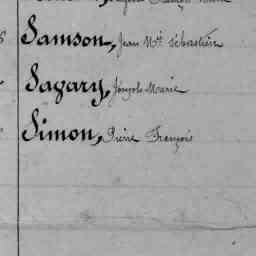 Samson, Jean Mie Sébastien
Sagary, Joseph Marie
Simon, Pierre François